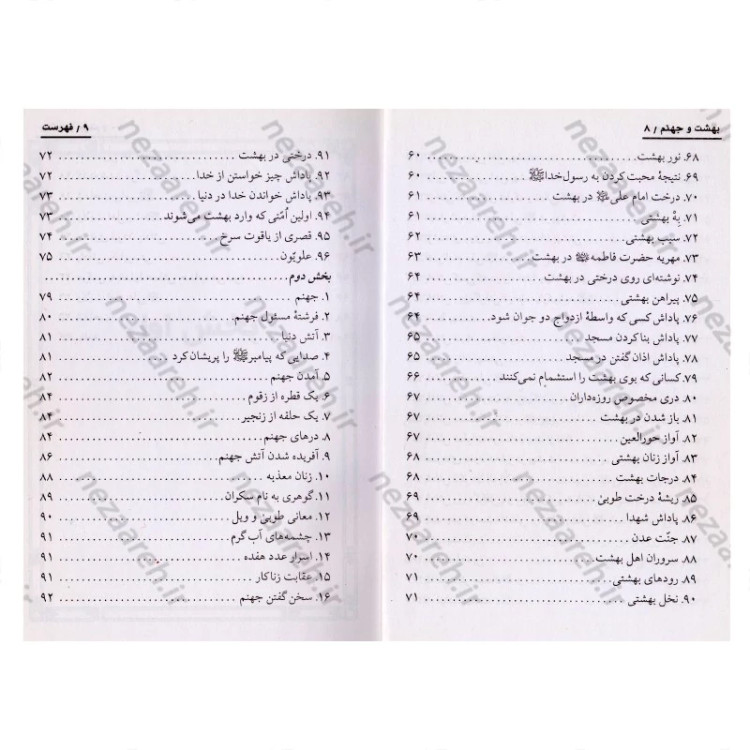 بهشت و جهنم / ۸
۶۸. نور بهشت ........ ۶۰
۶۹. نتیجهٔ محبت کردن به رسول خداﷺ ........ ۶۰
۷۰. درخت امام علی در بهشت ........ ۶۱
۷۱. بِهْ بهشتی ........ ۶۱
۷۲. سیب بهشتی ........ ۶۲
۷۳. مهریه حضرت فاطمه در بهشت ........ ۶۳
۷۴. نوشته‌ای روی درختی در بهشت ........ ۶۴
۷۵. پیراهن بهشتی ........ ۶۴
۷۶. پاداش کسی که واسطهٔ ازدواج دو جوان شود ........ ۶۴
۷۷. پاداش بنا کردن مسجد ........ ۶۵
۷۸. پاداش اذان گفتن در مسجد ........ ۶۵
۷۹. کسانی که بوی بهشت را استشمام نمی‌کنند ........ ۶۶
۸۰. دری مخصوص روزه‌داران ........ ۶۷
۸۱. باز شدن در بهشت ........ ۶۷
۸۲. آواز حورالعین ........ ۶۷
۸۳. آواز زنان بهشتی ........ ۶۸
۸۴. درجات بهشت ........ ۶۸
۸۵. ریشهٔ درخت طوبیٰ ........ ۶۹
۸۶. پاداش شهدا ........ ۶۹
۸۷. جنّت عدن ........ ۷۰
۸۸. سروران اهل بهشت ........ ۷۰
۸۹. رودهای بهشتی ........ ۷۱
۹۰. نخل بهشتی ........ ۷۱
۹ / فهرست
۹۱. درختی در بهشت ........ ۷۲
۹۲. پاداش چیز خواستن از خدا ........ ۷۲
۹۳. پاداش خواندن خدا در دنیا ........ ۷۳
۹۴. اولین اُمّتی که وارد بهشت می‌شوند ........ ۷۳
۹۵. قصری از یاقوت سرخ ........ ۷۴
۹۶. علویّون ........ ۷۵
بخش دوم ........
۱. جهنم ........ ۷۹
۲. فرشتهٔ مسئول جهنم ........ ۸۰
۳. آتش دنیا ........ ۸۱
۴. صدایی که پیامبرﷺ را پریشان کرد ........ ۸۱
۵. آمدن جهنم ........ ۸۲
۶. یک قطره از زقوم ........ ۸۴
۷. یک حلقه از زنجیر ........ ۸۴
۸. درهای جهنم ........ ۸۴
۹. آفریده شدن آتش جهنم ........ ۸۶
۱۰. زنان معذبه ........ ۸۸
۱۱. گوهری به نام سکران ........ ۸۹
۱۲. معانی طوبیٰ و ویل ........ ۹۰
۱۳. چشمه‌های آب گرم ........ ۹۱
۱۴. اسرار عدد هفده ........ ۹۱
۱۵. عقابت زناکار ........ ۹۱
۱۶. سخن گفتن جهنم ........ ۹۲
nezaareh.ir